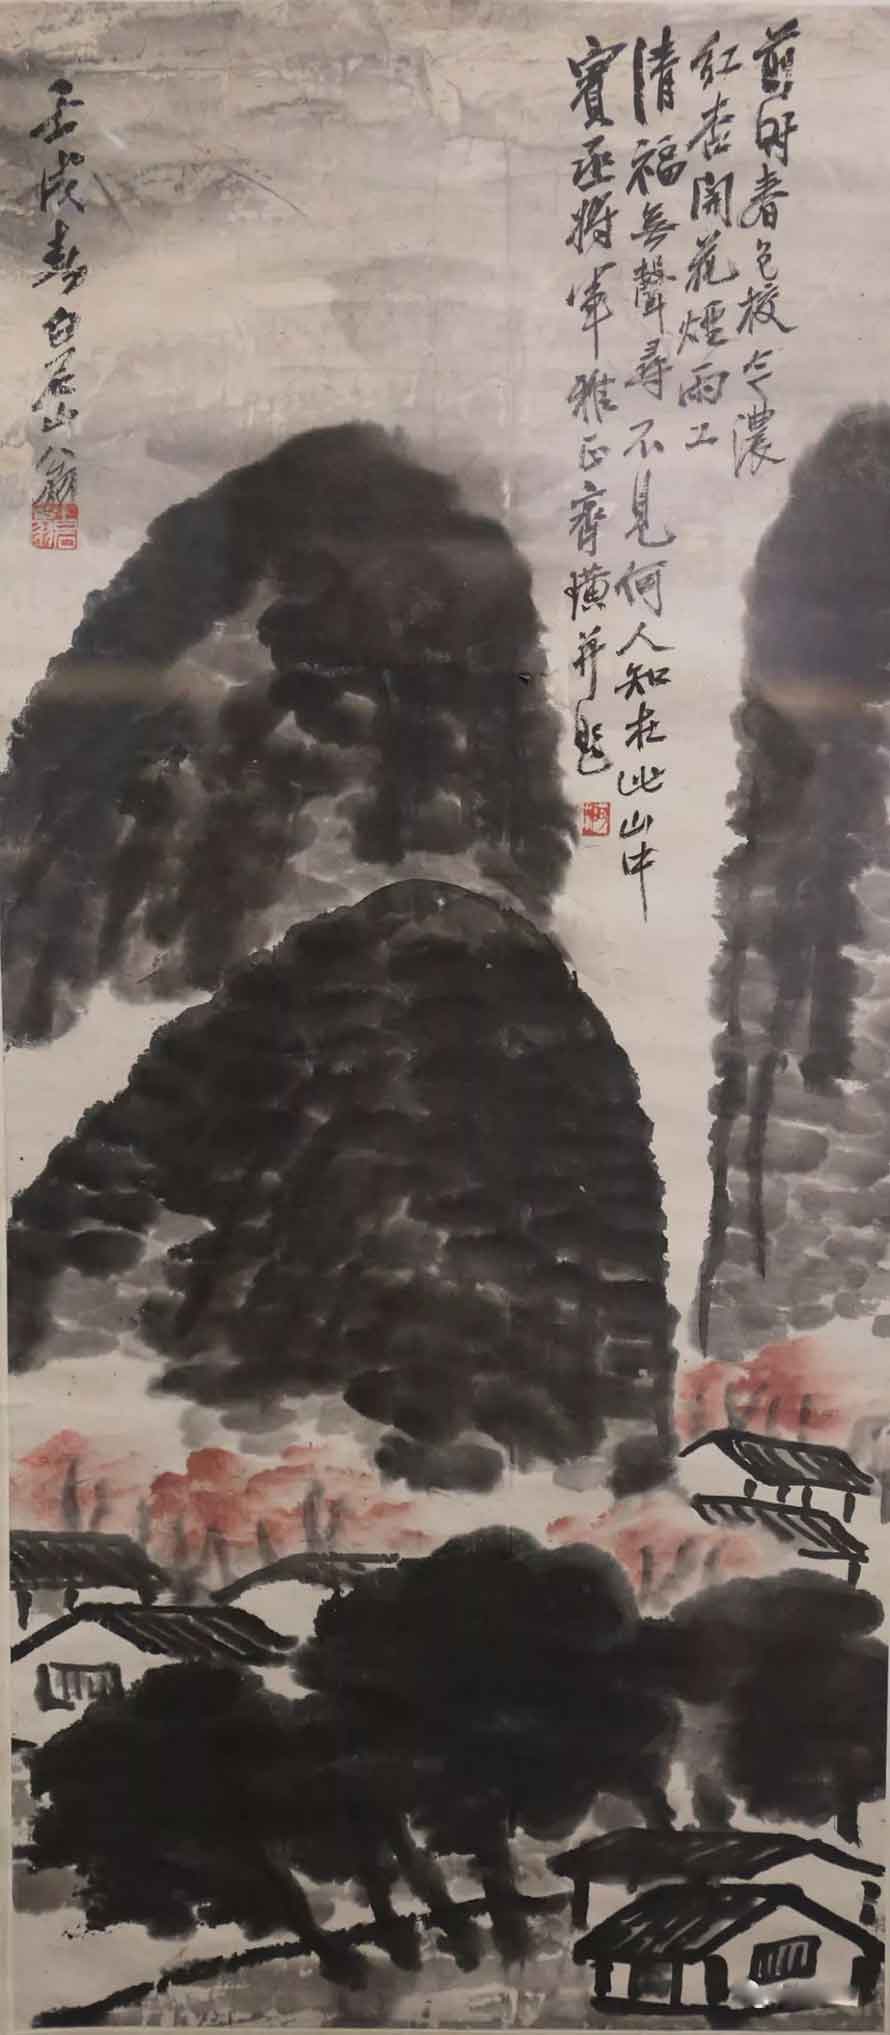 前時春色較今濃
紅杏開花煙雨工
清福無聲尋不見何人知在此山中
賓丞將軍雅正齊璜并題
壬戌春白石山翁